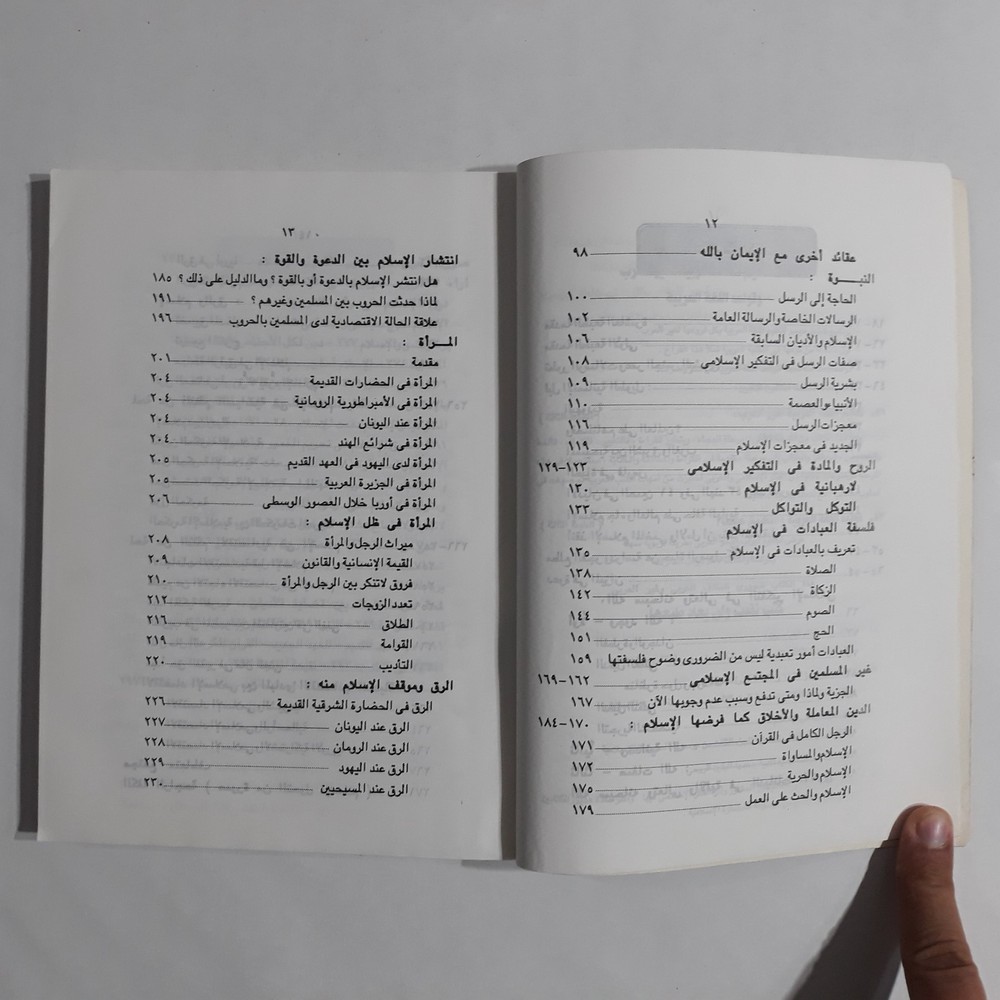 ١٢
عقائد أخرى مع الإيمان بالله ٩٨
النبـــوة :
الحاجة إلى الرسل ١٠٠
الرسالات الخاصة والرسالة العامة ١٠٢
الإسلام والأديان السابقة ١٠٦
صفات الرسل فى التفكير الإسلامى ١٠٨
بشرية الرسل ١٠٩
الأنبياء والعصمة ١١٠
معجزات الرسل ١١٦
الجديد فى معجزات الإسلام ١١٩
الروح والمادة فى التفكير الإسلامى ١٢٣-١٢٩
لارهبانية فى الإسلام ١٣٠
التوكل والتواكل ١٣٣
فلسفة العبادات فى الإسلام
تعريف بالعبادات فى الإسلام ١٣٥
الصلاة ١٣٨
الزكاة ١٤٢
الصوم ١٤٤
الحج ١٥١
العبادات أمور تعبدية ليس من الضرورى وضوح فلسفتها ١٥٩
غير المسلمين فى المجتمع الإسلامى ١٦٢-١٦٩
الجزية ولماذا ومتى تدفع وسبب عدم وجوبها الآن ١٦٧
الدين المعاملة والأخلاق كما فرضها الإسلام : ١٧٠-١٨٤
الرجل الكامل فى القرآن ١٧١
الإسلام والمساواة ١٧٢
الإسلام والحرية ١٧٥
الإسلام والحث على العمل ١٧٩
١٣
انتشار الإسلام بين الدعوة والقوة :
هل انتشر الإسلام بالدعوة أو بالقوة ؟ وما الدليل على ذلك ؟ ١٨٥
لماذا حدثت الحروب بين المسلمين وغيرهم ؟ ١٩١
علاقة الحالة الاقتصادية لدى المسلمين بالحروب ١٩٦
المـــرأة :
مقدمة ٢٠١
المرأة فى الحضارات القديمة ٢٠٤
المرأة فى الأمبراطورية الرومانية ٢٠٤
المرأة عند اليونان ٢٠٤
المرأة فى شرائع الهند ٢٠٤
المرأة لدى اليهود فى العهد القديم ٢٠٥
المرأة فى الجزيرة العربية ٢٠٥
المرأة فى أوربا خلال العصور الوسطى ٢٠٦
المرأة فى ظل الإسلام :
ميراث الرجل والمرأة ٢٠٨
القيمة الإنسانية والقانون ٢٠٩
فروق لاتنكر بين الرجل والمرأة ٢١٠
تعدد الزوجات ٢١٢
الطلاق ٢١٦
القوامة ٢١٩
التأديب ٢٢٠
الرق وموقف الإسلام منه :
الرق فى الحضارة الشرقية القديمة ٢٢٦
الرق عند اليونان ٢٢٧
الرق عند الرومان ٢٢٨
الرق عند اليهود ٢٢٩
الرق عند المسيحيين ٢٣٠